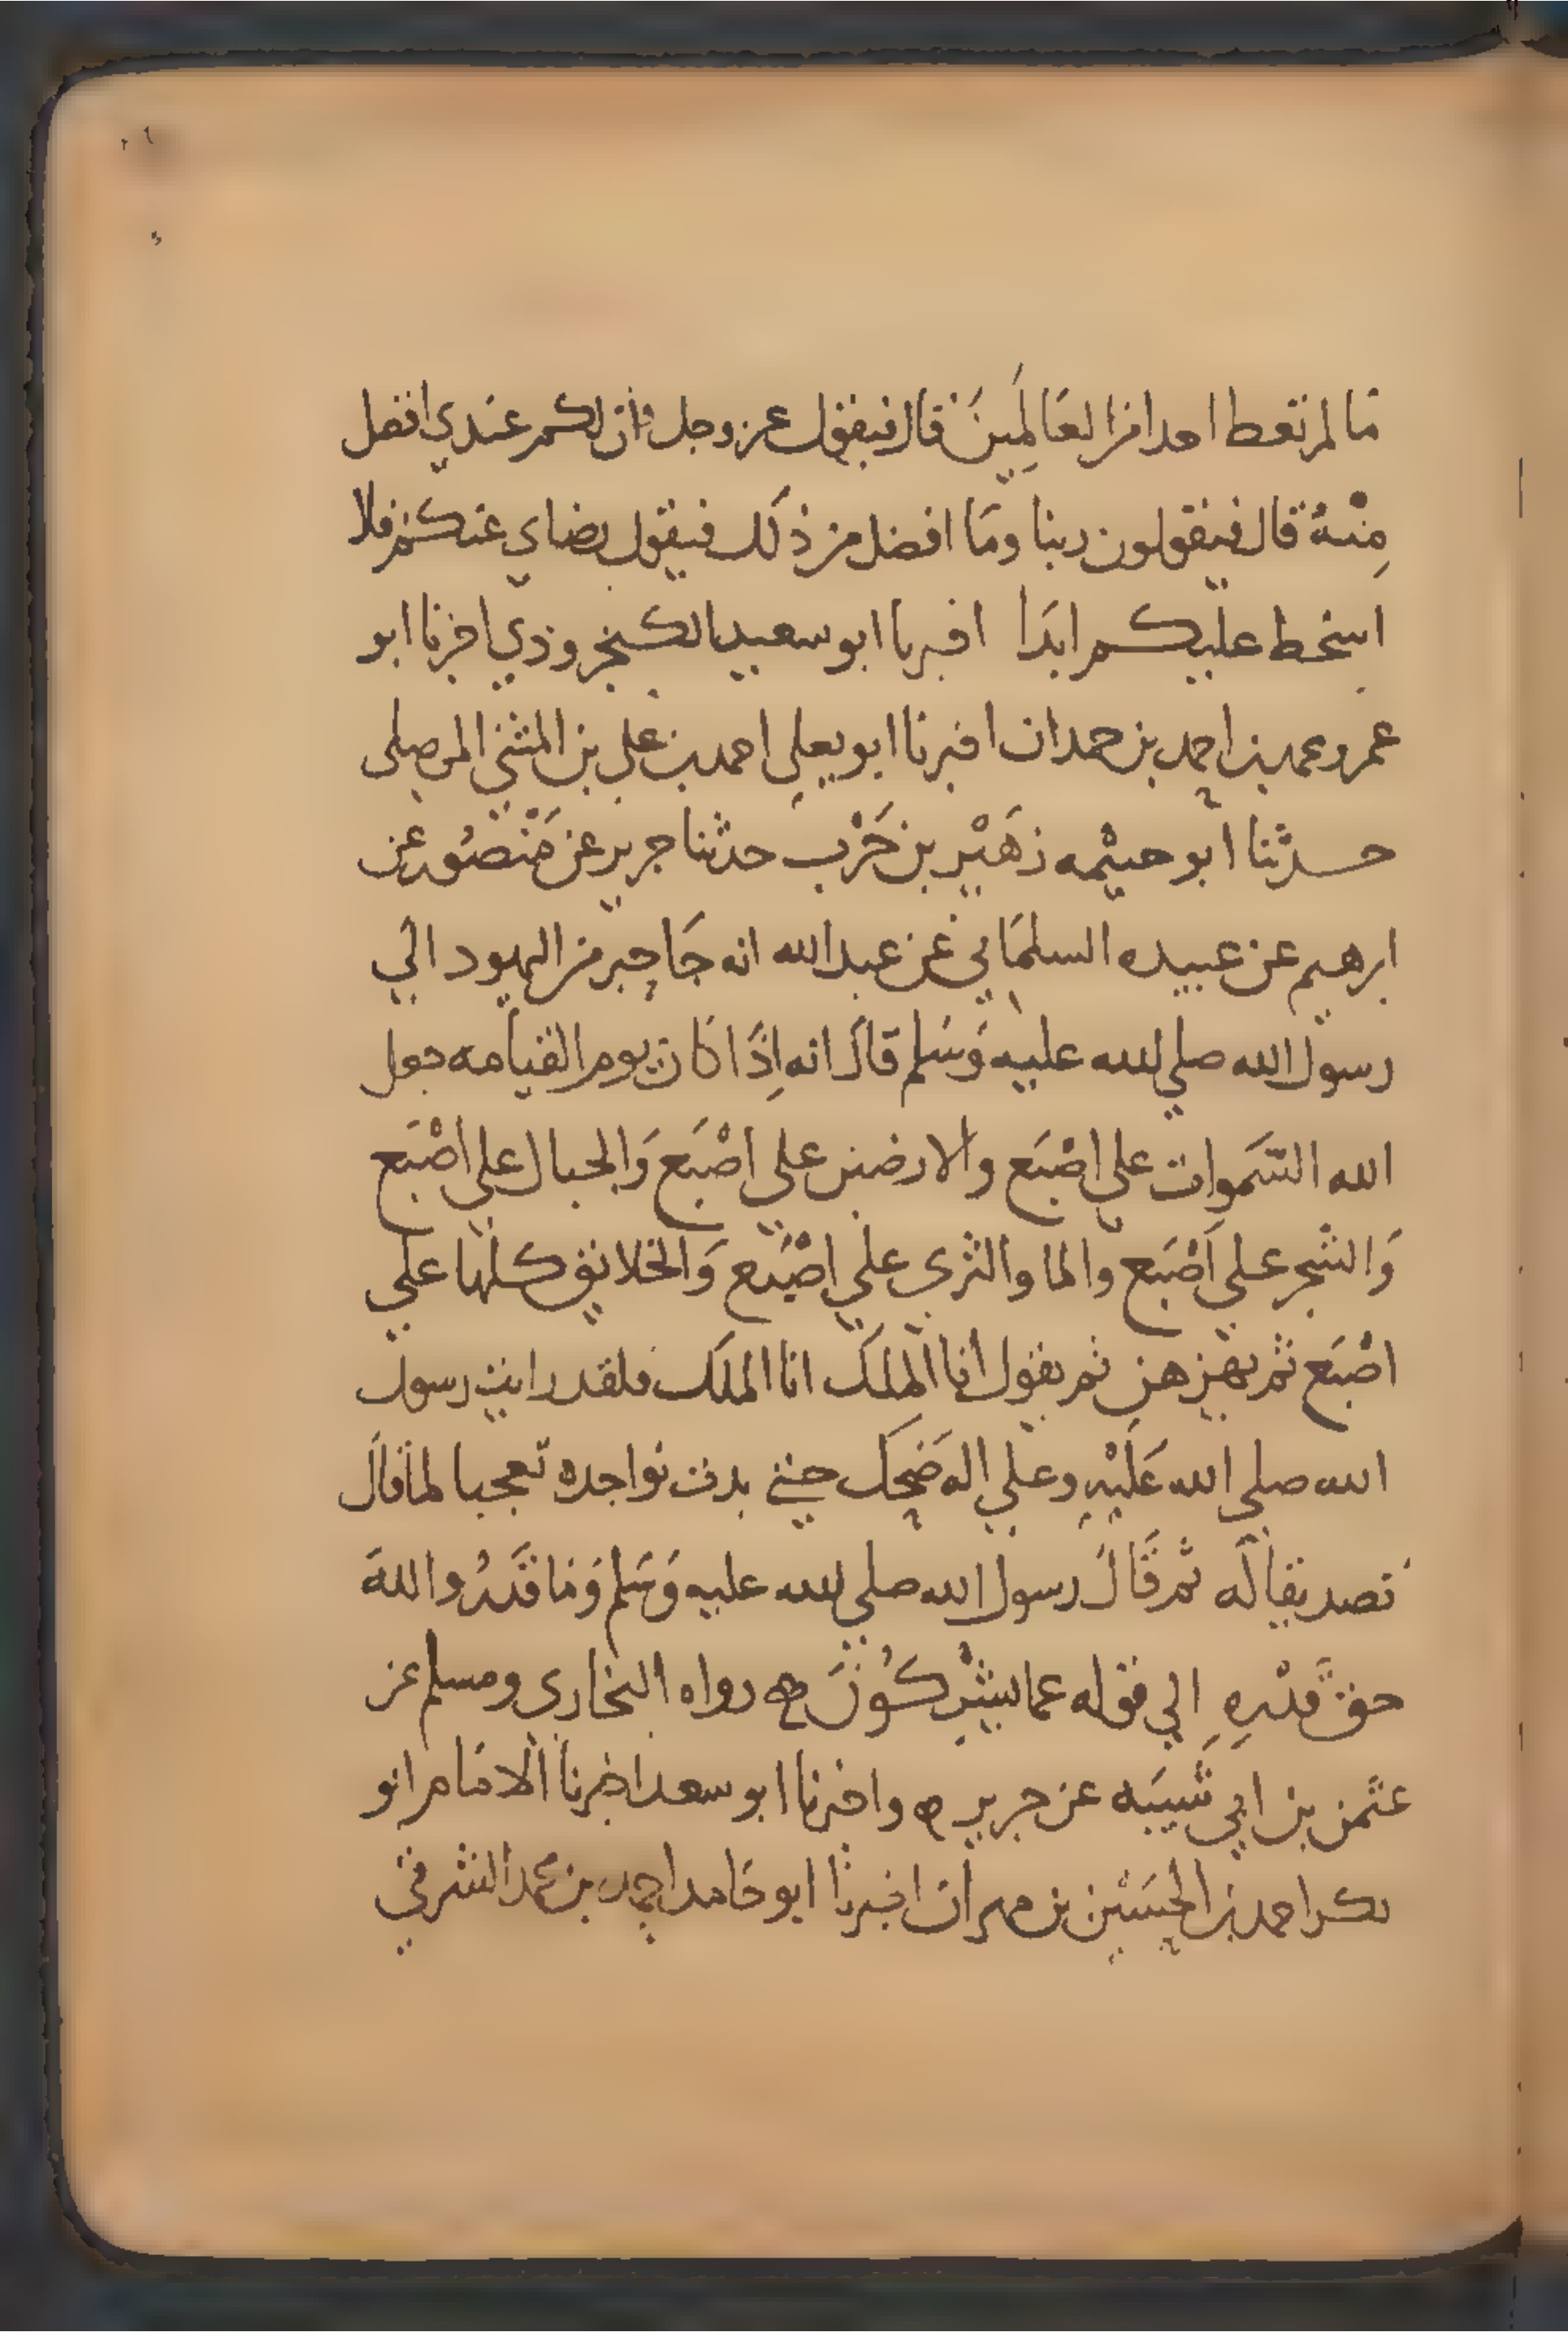 ما لم تعط احدا من العَالَمِينَ قال فيقول عز وجل فان لكم عندي افضل
مِنْهُ قال فيقولون ربنا ومَا افضل من ذلك فيقول رضاي عنكم فلا
اسخط عليكم ابدَا اخبرنا ابو سعيد الكنجروذي اخبرنا ابو
عمرو محمد بن احمد بن حمدان اخبرنا ابو يعلي احمد بن علي بن المثني الموصلي
حدثنا ابو خيثمه زهَيْر بن حَرْب حدثنا جرير عن مَنْصُور عن
ابرهيم عن عبيده السلمَاني عن عبد الله انه جَا حبر من اليهود الي
رسول الله صلي الله عليه وَسَلم قالَ انه اِذَا كان يوم القيامه جعل
الله السَّموات علي اصْبَع والارضين علي اصْبَع وَالجبال علي اصْبَع
وَالشجر علي اصْبَع والما والثري علي اصْبَع وَالخلايق كلها علي
اصْبَع ثم يهزهن ثم يقول انا الملك انا الملك فلقد رايت رسول
الله صلي الله عَلَيْهِ وعلي اله ضَحِكَ حتي بدت نواجده تعجبا لما قال
تصديقا له ثم قَالَ رسول الله صلي الله عليه وَسَلم وَمَا قَدَرُوا اللهَ
حقَّ قَدْرِهِ الي قوله عما يشْرِكُونَ ه رواه البخاري ومسلم عن
عثمن بن ابي شَيبَه عن جرير ه واخبرنا ابو سعد اخبرنا الامَام ابو
بكر احمد بن الحسَيْن بن مهران اخبرنا ابو حَامد احمد بن محمد الشرقي